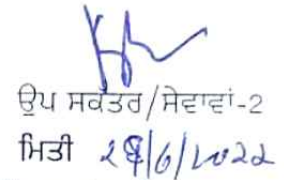 ਉਪ ਸਕੱਤਰ/ਸੇਵਾਵਾਂ-2
ਮਿਤੀ 28/6/2022